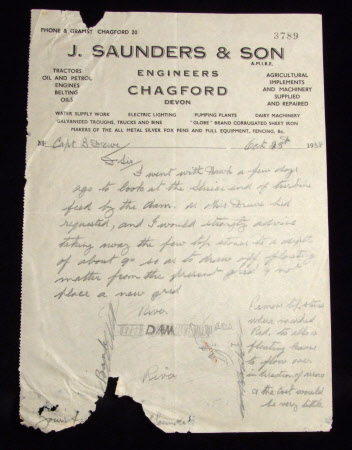 PHONE & GRAMS! CHAGFORD 20
3789
J. SAUNDERS & SON
A.M.I.B.E.
ENGINEERS
CHAGFORD
DEVON
TRACTORS
OIL AND PETROL
ENGINES
BELTING
OILS
AGRICULTURAL
IMPLEMENTS
AND MACHINERY
SUPPLIED
AND REPAIRED
WATER SUPPLY WORK ELECTRIC LIGHTING PUMPING PLANTS DAIRY MACHINERY
GALVANIZED TROUGHS, TRUCKS AND BINS "GLOBE" BRAND CORRUGATED SHEET IRON
MAKERS OF THE ALL METAL SILVER FOX PENS AND FULL EQUIPMENT, FENCING, &c.
Capt Drewe Oct 28th 193
D Sir
I went with a few days
ago to look at the sluice end of turbine
feed by the dam. as Mr Drewe had
requested, and I would strongly advise
taking away the few top stones to a depth
of about 9" so as to draw off floating
matter from the present grid & not
place a new grid
River
DAM
River
Brook
Remove top stones
where marked
Red. to allow
floating leaves
to flow over
in direction of arrows
& the cost would
be very little